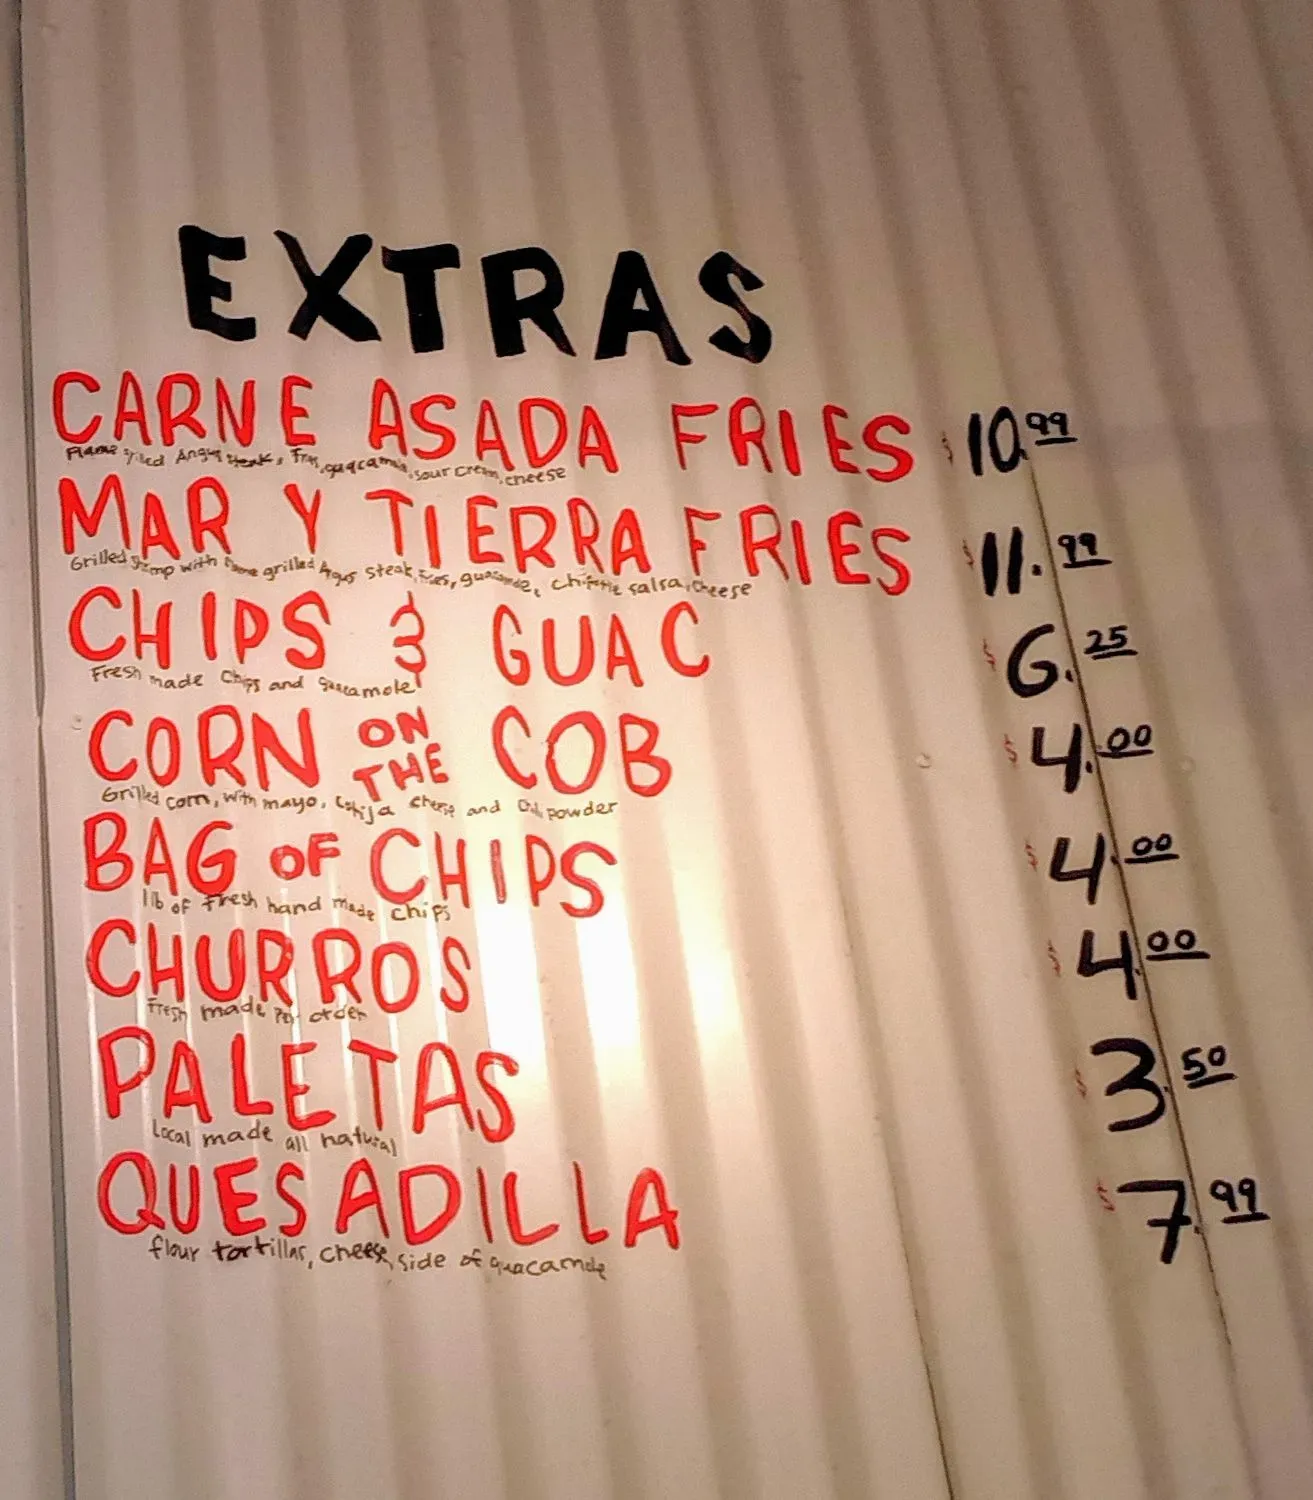 EXTRAS
CARNE ASADA FRIES $10.99
Flame grilled Angus steak, Fries, guacamole, sour cream, cheese
MAR Y TIERRA FRIES $11.99
Grilled shrimp with flame grilled Angus steak, Fries, guacamole, chipotle salsa, cheese
CHIPS & GUAC $6.25
Fresh made Chips and guacamole
CORN ON THE COB $4.00
Grilled corn, with mayo, Cotija cheese and Chili powder
BAG OF CHIPS $4.00
1lb of fresh hand made chips
CHURROS $4.00
Fresh made Per order
PALETAS $3.50
Local made all natural
QUESADILLA $7.99
flour tortillas, cheese, side of guacamole